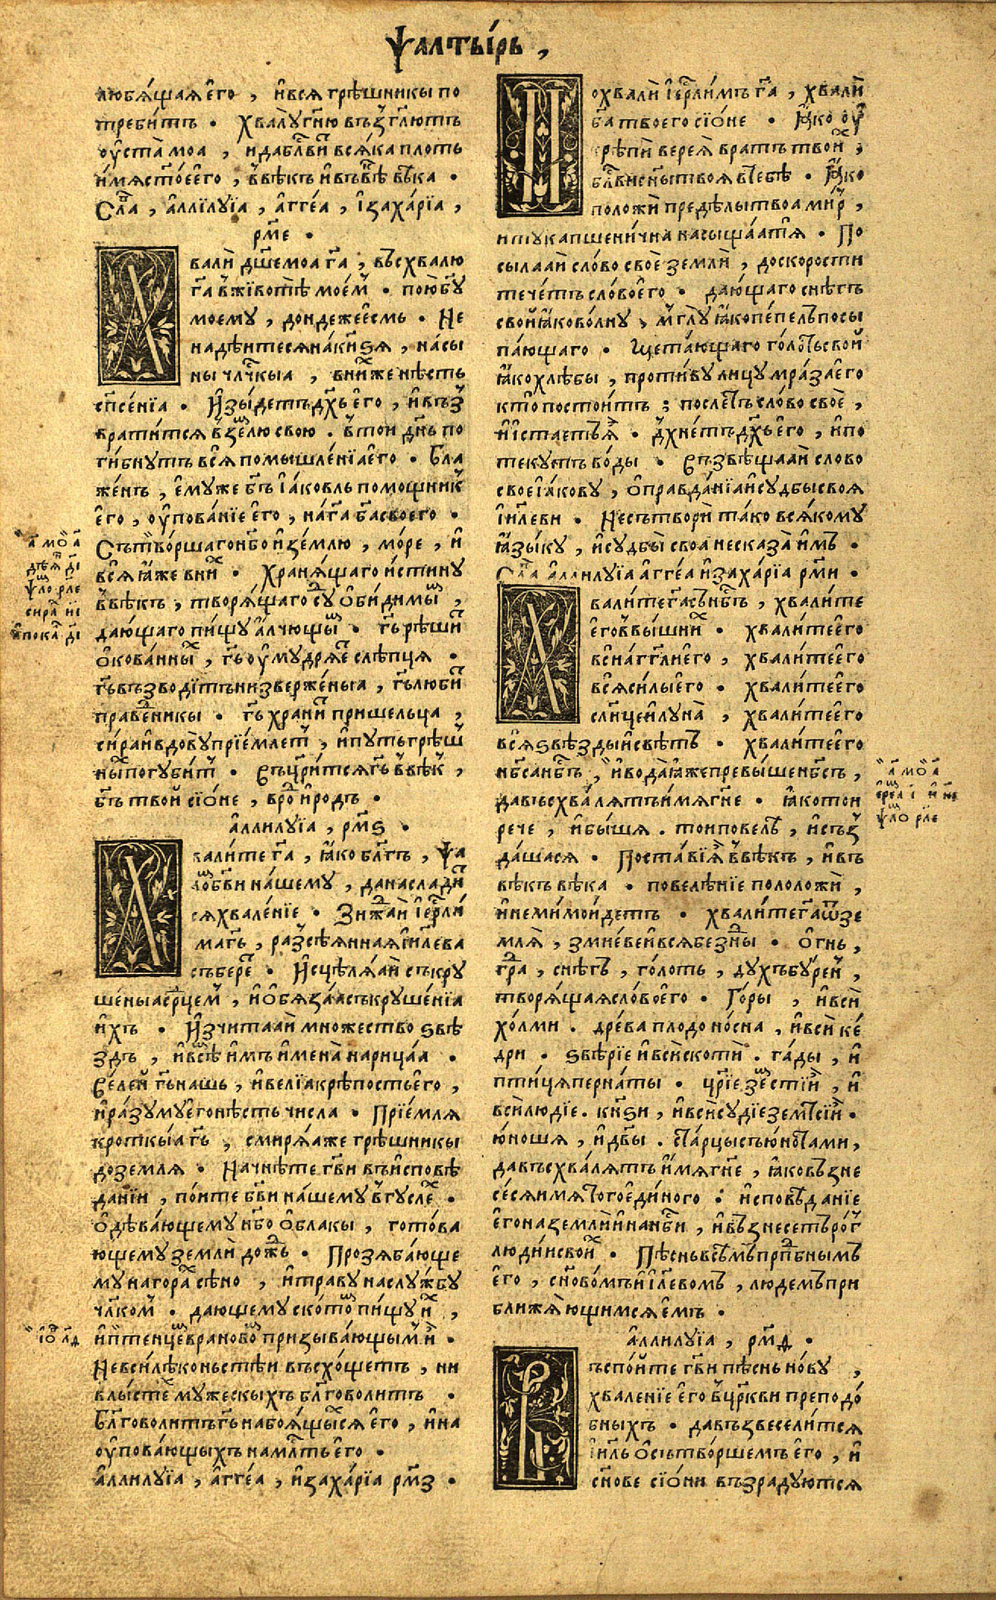 Ѱалты́рь ,
любѧ́щаѧ є҆го̀ , и҆ всѧ грѣ́шники по
треби́тъ . Хвалꙋ̀ гн҃ю възг҃лютъ
ѹ҆ста̀ моѧ̀ , и҆ да бл҃ви́тъ всѧ́ка пло́ть
и҆́мѧ ст҃о́е є҆го̀ , в вѣ́къ и҆ въ вѣ́къ вѣ́ка .
Сла́ва , а҆ллилꙋ́їа , а҆гге́а , і҆ заха́рїа ,
рм҃е .
валѝ дш҃е моѧ̀ га҃ , въсхвалю̀
га҃ в животѣ̀ мое́мъ . пою̀ бг҃ꙋ
моемꙋ̀ , до́ндеже є҆́смь . Не
надѣ́итесѧ на кн҃ѕѧ , на сы
ны чл҃чкыа , в ни́хже нѣ́сть
сп҃се́нїа . И҆зы́детъ дх҃ъ є҆го̀ , и҆ въз
врати́тсѧ в зе́млю свою̀ . в то́и дн҃ь по
ги́бнꙋтъ всѧ̀ помышле́нїа є҆го̀ . Бл҃а
же́нъ , є҆мꙋ́же бг҃ъ і҆а́ковль помо́щникъ
є҆го̀ , ѹ҆пова́нїе є҆го̀ , на га҃ бг҃а своего̀ .
Сътво́ршаго нб҃о и҆ зе́млю , мо́ре , и҆
всѧ̀ ꙗ҆́же в ни́хъ . Хранѧ́щаго и҆́стинꙋ
в вѣ́къ , творѧ́щаго сꙋ́дъ ѻ҆би́димымъ ,
даю́щаго пи́щꙋ а҆́лчющымъ . гь҃ рѣши́тъ
ѻ҆кова́нныѧ , гь҃ ѹ҆мꙋдрѧ́етъ слѣпца̀ .
гь҃ възво́дїтъ низве́рженыѧ , гь҃ лю́битъ
пра́ведникы . гь҃ храни́тъ прише́льца ,
си́ра и҆ вдовꙋ̀ прїе́млетъ , и҆ пꙋ́ть грѣ́ш
ныхъ погꙋби́тъ . Въцр҃и́тсѧ гь҃ в вѣ́къ ,
бг҃ъ тво́й сїѡ́не , в ро́дъ и҆ ро́дъ .
а҆ллилꙋ́їа , рм҃ѕ .
вали́те га҃ , ꙗ҆́ко бл҃гъ , ѱа
ло́мъ бг҃ви на́шемꙋ , да наслади́т
сѧ хвале́нїе . Зи́ждай і҆ер҃ли́
ма гь҃ , разсѣ́ѧннаѧ і҆и҃лева
събере́тъ . И҆сцѣлѧ́ѧй съкрꙋ
ше́ныѧ ср҃цемъ , и҆ ѻ҆бѧза́ѧ съкрꙋше́нїа
и҆́хъ . И҆зчита́ай мно́жество ѕвѣ
здъ , и҆ всѣ̀мъ и҆́мъ и҆мена̀ нарица́ѧ .
Ве́лей гь҃ на́шь , и҆ ве́лїа крѣ́пость є҆го̀ ,
и҆ ра́зꙋмꙋ є҆го̀ нѣ́сть числа̀ . Прїе́млѧ
кро́ткыа гь҃ , смирѧ́ѧ же грѣ́шникы
до землѧ̀ . Начнѣ́те гв҃и въ и҆сповѣ́
данїи , по́ите бг҃ви на́шемꙋ в гꙋ́слехъ .
Ѻ҆дѣва́ющемꙋ нб҃о ѻ҆́блакы , гото́ва
ющемꙋ землѝ до́ждь . Прозѧба́юще
мꙋ на гора́хъ сѣ́но , и҆ травꙋ̀ на слꙋ́жбꙋ
чл҃комъ . даю́щемꙋ ското́мъ пи́щꙋ и҆́хъ ,
и҆ птенце́мъ врановомъ призыва́ющымъ и҆̀ .
Не в си́лѣ ко́ньстѣи въсхо́щетъ , ни
в лы́стѣхъ мꙋ́жескыхъ бл҃говоли́тъ .
Бл҃говоли́тъ гь҃ на боѧ́щыхсѧ є҆го̀ , и҆ на
ѹ҆пова́ющыхъ на мл҃ть є҆го̀ .
а҆ллилꙋ́їа , а҆гге́а , и҆ заха́рїа рм҃з .
охвалѝ і҆ер҃ли́мъ га҃ , хвалѝ
бг҃а твоего̀ сїѡ́не . Ꙗ҆́ко ѹ҆
крѣпѝ вереѧ̀ вра́тъ твои́хъ ,
бл҃ви сн҃ы твоѧ̀ в тебѣ̀ . Ꙗ҆́ко
положѝ предѣ́лы твоѧ̀ ми́ръ ,
и҆ тꙋ́ка пшени́чна насыща́ѧ тѧ̀ . По
сыла́ай сло́во своѐ землѝ , до ско́рости
тече́тъ сло́во є҆го̀ . даю́щаго снѣ́гъ
сво́й ꙗ҆́ко во́лнꙋ , мглꙋ̀ ꙗ҆́ко пе́пелъ посы
па́ющаго . Щета́ющаго го́лоть свой
ꙗ҆́ко хлѣ́бы , проти́вꙋ лицꙋ̀ мра́за є҆го̀
кто̀ постои́тъ ; по́слетъ сло́во своѐ ,
и҆ и҆ста́етъ ѧ҆̀ . дх҃не́тъ дх҃ъ є҆го̀ , и҆ по
текꙋ́тъ во́ды . Възвѣща́ай сло́во
своѐ і҆а́ковꙋ , ѻ҆правда́нїа и҆ сꙋдбы̀ своѧ̀
і҆и҃леви . Не сътворѝ та́ко всѧ́комꙋ
ꙗ҆зы́кꙋ , и҆ сꙋдбы̀ своѧ̀ не сказа̀ и҆̀мъ .
Сла́ва аллилꙋ́їа а҆гге́а и҆ заха́рїа рм҃и .
вали́те га҃ съ нб҃съ , хвали́те
є҆го̀ в вы́шнихъ . хвали́те є҆го̀
всѝ а҆́гг҃ли є҆го̀ , хвали́те є҆го̀
всѧ̀ си́лы є҆го̀ . хвали́те є҆го̀
сл҃нце и҆ лꙋна̀ , хвали́те є҆го̀
всѧ̀ ѕвѣ́зды и҆ свѣ́тъ . хвали́те є҆го̀
нб҃са нб҃съ , и҆ вода̀ ꙗ҆́же превы́ше нб҃съ ,
да въсхва́лѧтъ и҆́мѧ гн҃е . ꙗ҆́ко то́и
рече , и҆ бы́шѧ . то́и повелѣ̀ , и҆ създа́шасѧ . Поста́ви ѧ҆̀ в вѣ́къ , и҆ въ
вѣ́къ вѣ́ка . повелѣ́нїе положѝ ,
и҆ не ми́мо и҆́детъ . хвали́те га҃ ѿ зе
млѧ̀ , змїе́ве и҆ всѧ̀ бе́здны . ѻ҆́гнь ,
гра́дъ , снѣ́гъ , го́лоть , дꙋ́хъ бꙋ́ренъ ,
творѧ́щаѧ сло́во є҆го̀ . Го́ры , и҆ всѝ
хо́лми . дре́ва плодоно́сна , и҆ всѝ ке́
дри . ѕвѣ́рїе и҆ всѝ ско́ти . га́ды , и҆
пти́цѧ перна́ты . ц҃рїе зе́мстїи , и҆
всѝ лю́дїе . кн҃ѕи , и҆ всѝ сꙋдїѐ зе́мстїи .
ю҆́ношѧ , и҆ дв҃ы . ста́рцы съ ю҆́нотами ,
да въсхва́лѧтъ и҆́мѧ гн҃е , ꙗ҆́ко възне
се́сѧ и҆́мѧ того̀ є҆ди́ного : и҆сповѣ́данїе
є҆го̀ на землѝ и҆ на нб҃си , и҆ възнесе́тъ ро́гъ
люді́и свои́хъ . Пѣ́снь всѣ́мъ прп҃бнымъ
є҆го̀ , сн҃ово́мъ и҆ і҆и҃левомъ , лю́демъ при
ближа́ющимсѧ є҆мъ .
а҆ллилꙋ́їа , рм҃д .
ъспо́йте гв҃и пѣ́снь но́вꙋ ,
хвале́нїе є҆го̀ в цр҃кви преподо́
бныхъ . да възвесели́тсѧ
і҆и҃ль ѻ҆ сътво́ршемъ є҆го̀ , и҆
сн҃ове сїѡ́ни възра́дꙋютсѧ